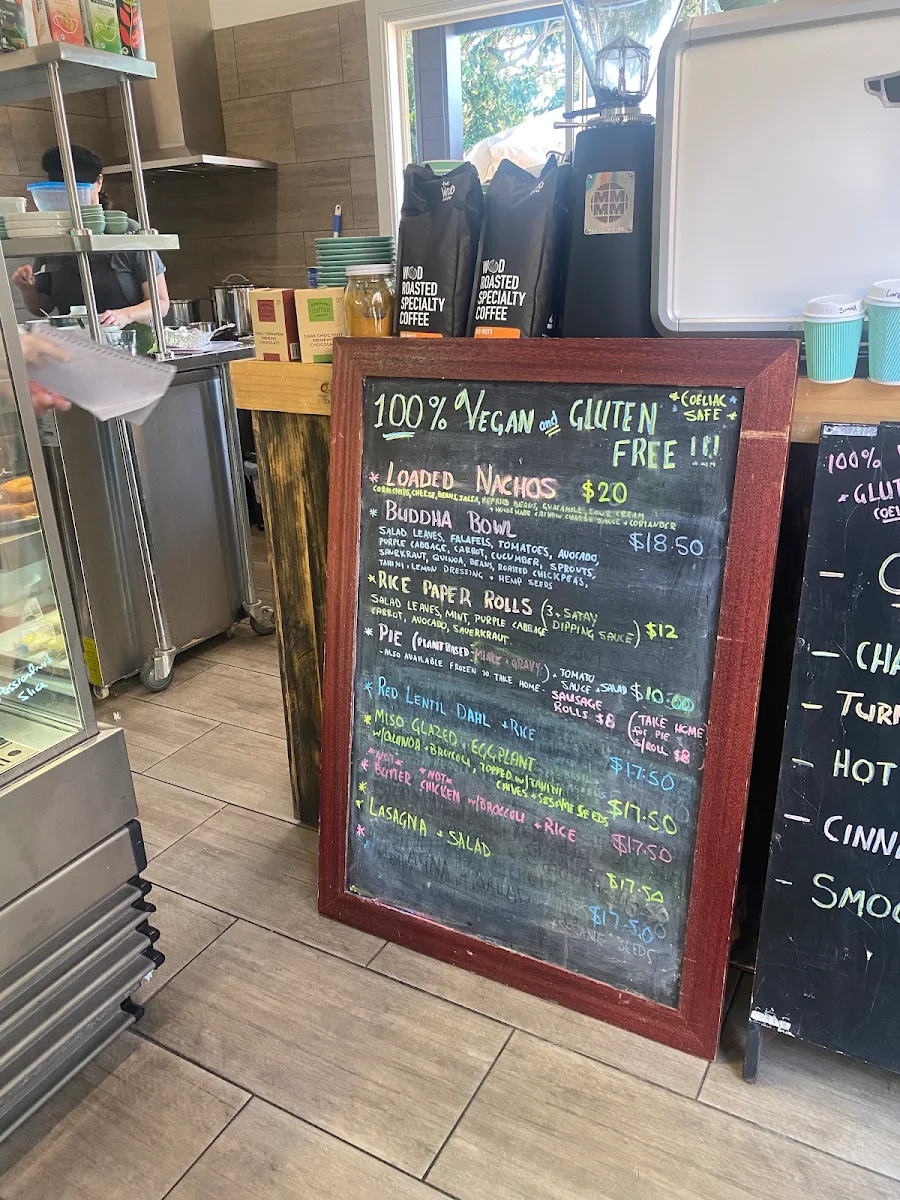 the WOOD
WOOD
ROASTED
SPECIALTY
COFFEE
WOOD
ROASTED
SPECIALTY
COFFEE
MM
MM
Small
Large
coffee
CHOCOLATE
DARK CHOCOLATE
DRINKING
CHOCOLATE
100% VEGAN and GLUTEN
FREE !!!
*COELIAC
SAFE *
* LOADED NACHOS $20
CORN CHIPS, CHEESE, BEANS, SALSA, REFRIED BEANS, GUACAMOLE, SOUR CREAM
+ HOUSEMADE CASHEW CHEESE SAUCE + CORIANDER
* BUDDHA BOWL $18.50
SALAD LEAVES, FALAFELS, TOMATOES, AVOCADO,
PURPLE CABBAGE, CARROT, CUCUMBER, SPROUTS,
SAUERKRAUT, QUINOA, BEANS, ROASTED CHICKPEAS,
TAHINI + LEMON DRESSING + HEMP SEEDS
* RICE PAPER ROLLS (3 + SATAY
DIPPING SAUCE) $12
SALAD LEAVES, MINT, PURPLE CABBAGE
CARROT, AVOCADO, SAUERKRAUT
* PIE (PLANT BASED MINCE + GRAVY) + TOMATO
SAUCE + SALAD $10.00
- ALSO AVAILABLE FROZEN TO TAKE HOME -
SAUSAGE
ROLLS $8
(TAKE HOME
for PIE
S/ROLL $8)
* RED LENTIL DAHL + RICE
$17.50
* MISO GLAZED EGGPLANT
W/QUINOA + BROCCOLI, TOPPED W/TAHINI
CHIVES + SESAME SEEDS $17.50
*NOT* *NOT*
* BUTTER CHICKEN W/BROCCOLI + RICE $17.50
* LASAGNA + SALAD
$17.50
*
$17.50
LASAGNA + SALAD
SESAME SEEDS
100%
* GLUT
COEL
- C
- CHA
- TURM
- HOT
- CINN
- SMOO
Passionfruit
Slice